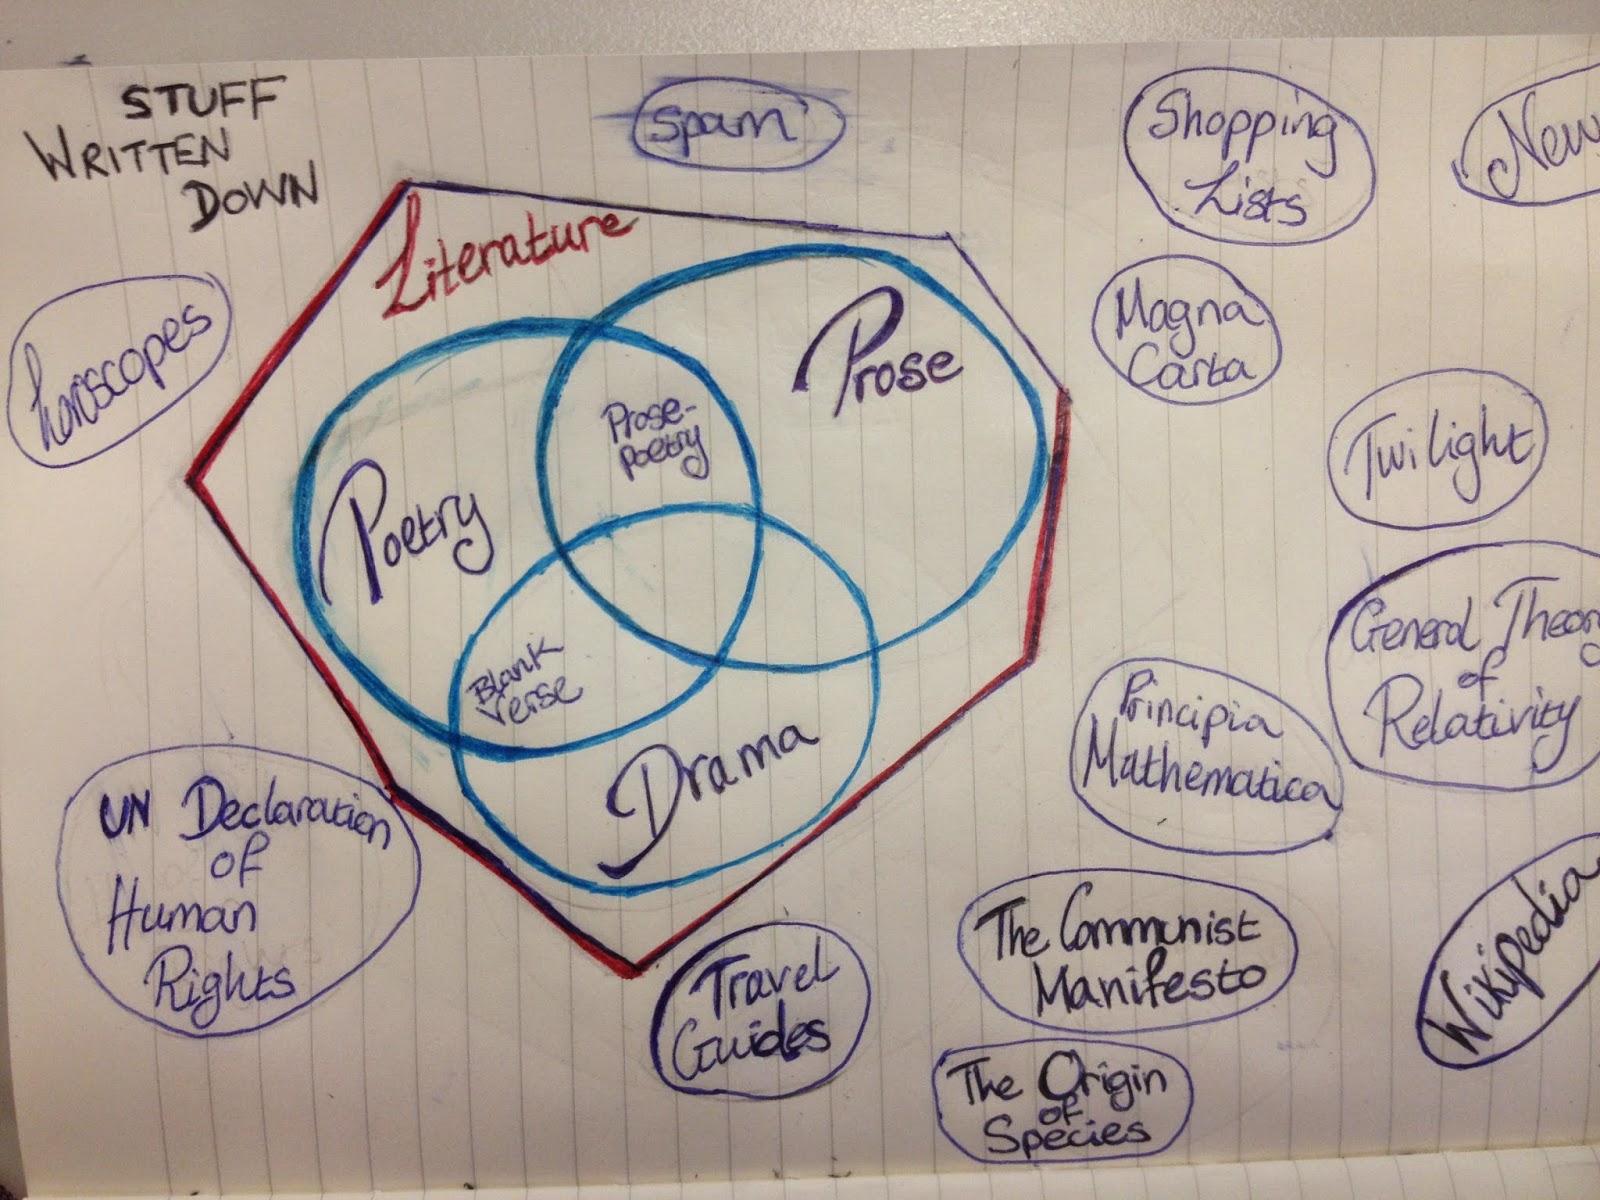 STUFF
WRITTEN
DOWN
Spam
Shopping
Lists
New
Literature
Horoscopes
Prose
Magna
Carta
Prose-
poetry
Twilight
Poetry
General Theory
of
Relativity
Blank
verse
Principia
Mathematica
Drama
UN Declaration
of
Human
Rights
The Communist
Manifesto
Wikipedia
Travel
Guides
The Origin
of
Species